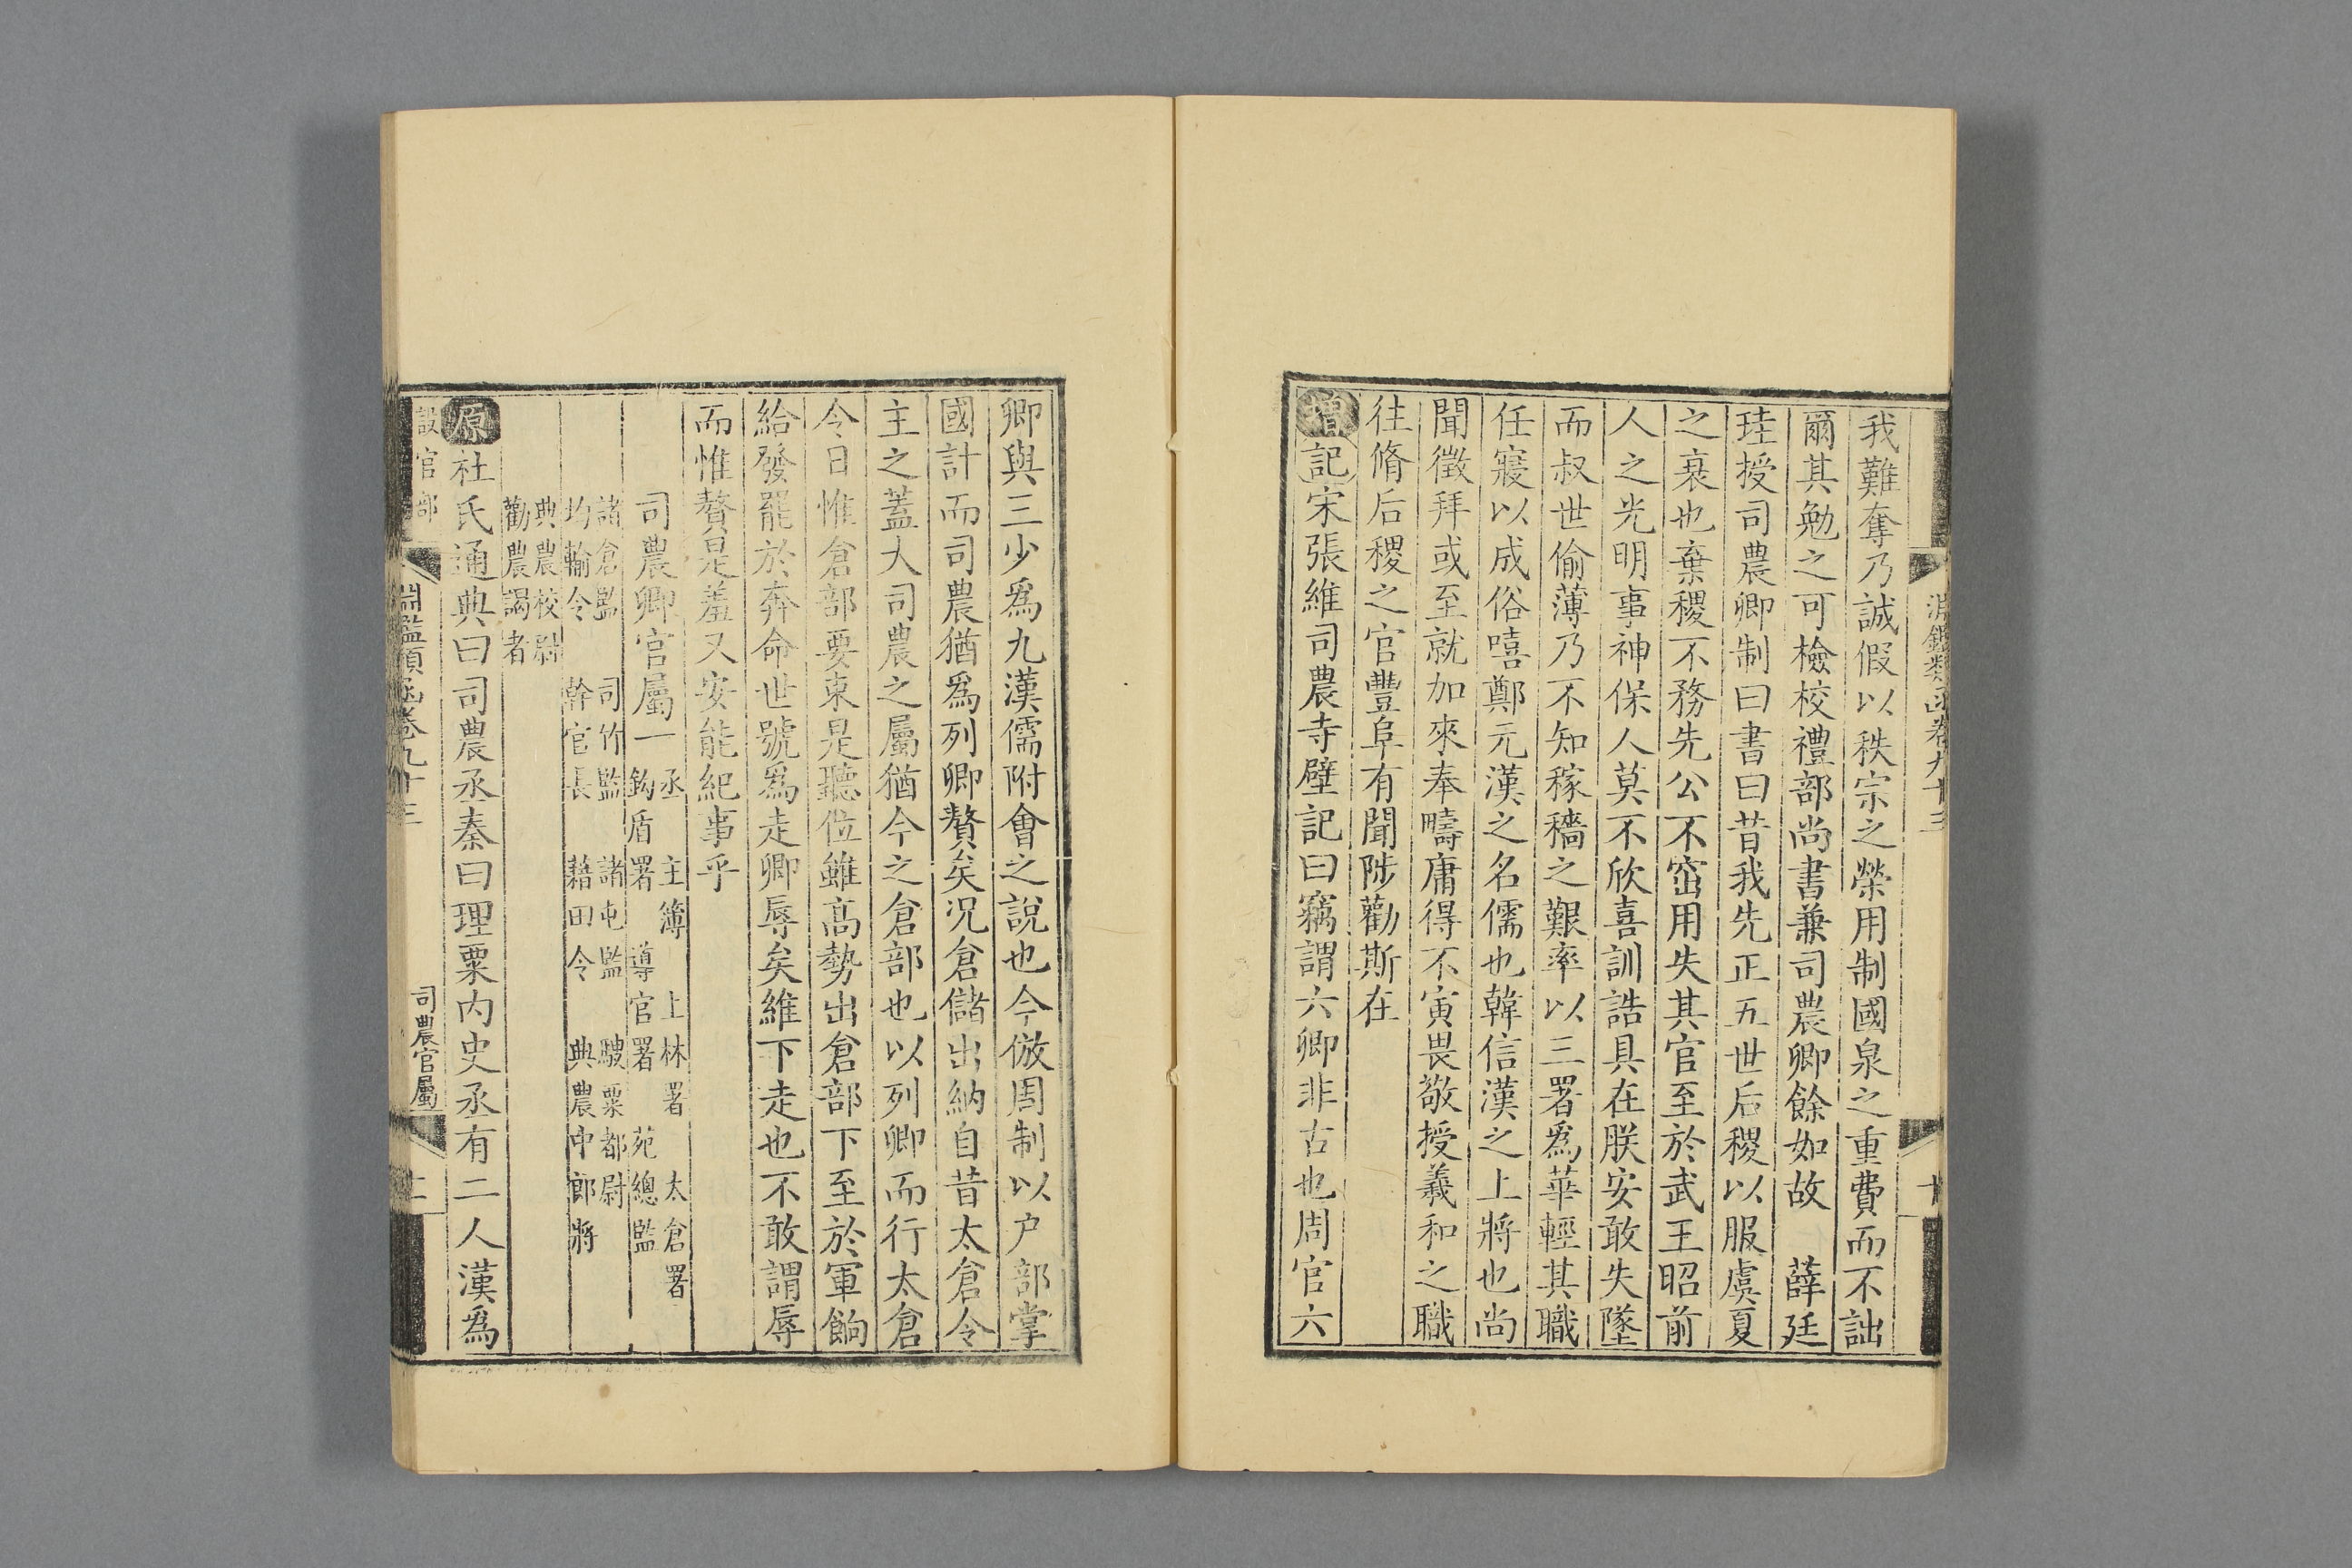 淵鑑類函卷九十三
十
我難奪乃誠假以秩宗之榮用制國泉之重費而不詘
爾其勉之可檢校禮部尚書兼司農卿餘如故　薛廷
珪授司農卿制曰書曰昔我先正五世后稷以服虞夏
之衰也棄稷不務先公不窋用失其官至於武王昭前
人之光明事神保人莫不欣喜訓誥具在朕安敢失墜
而叔世偷薄乃不知稼穡之艱率以三署爲華輕其職
任寖以成俗嘻鄭元漢之名儒也韓信漢之上將也尚
聞徵拜或至就加來奉疇庸得不寅畏敬授羲和之職
往脩后稷之官豐阜有聞陟勸斯在
增記宋張維司農寺壁記曰竊謂六卿非古也周官六
卿與三少爲九漢儒附會之說也今倣周制以户部掌
國計而司農猶爲列卿贅矣况倉儲出納自昔太倉令
主之蓋大司農之屬猶今之倉部也以列卿而行太倉
今日惟倉部要束是聽位雖高勢出倉部下至於軍餉
給發罷於奔命世號爲走卿辱矣維下走也不敢謂辱
而惟贅是羞又安能紀事乎
司農卿官屬一
丞　主簿　上林署　太倉署
鈎盾署　導官署　苑總監
諸倉監　司竹監　諸屯監　騪粟都尉
均輸令　幹官長　藉田令　典農中郎將
典農校尉
勸農謁者
原杜氏通典曰司農丞秦曰理粟内史丞有二人漢爲
設官部
淵鑑類函卷九十三
司農官屬